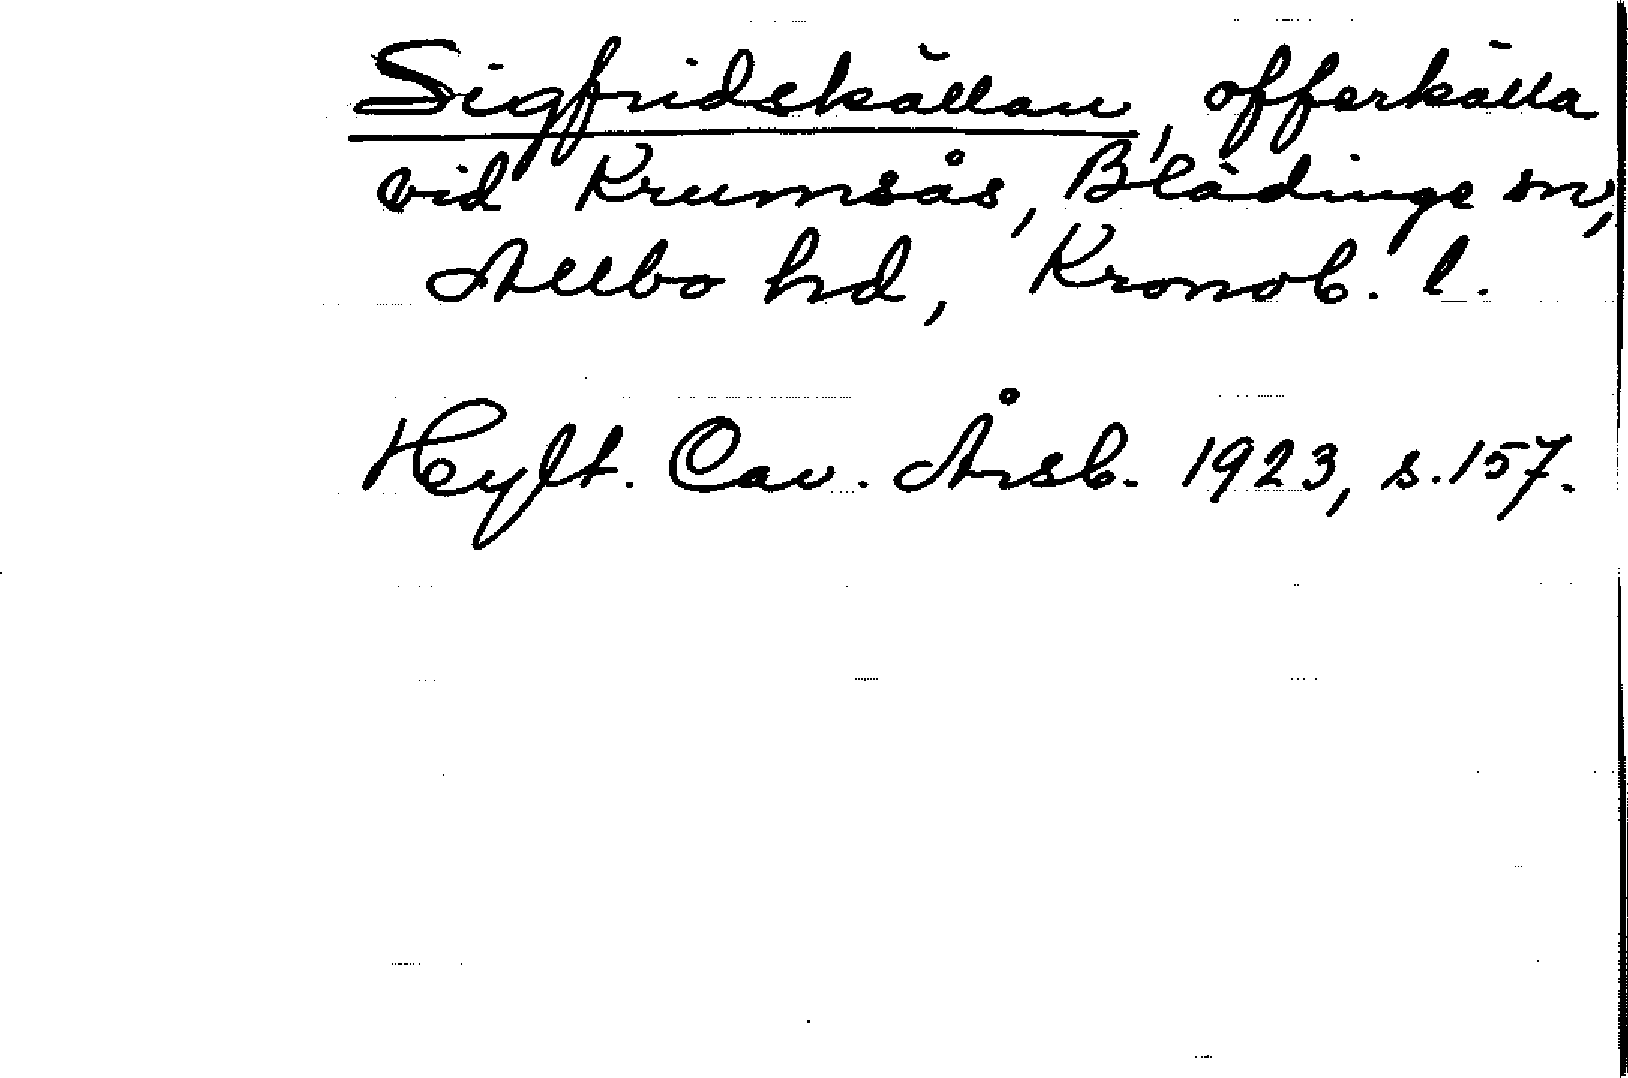 Sigfridskällan, offerkälla
vid Krumsås, Blädinge sn,
Allbo hd, Kronob. l.
Hylt. Cav. Årsb. 1923, s. 157.